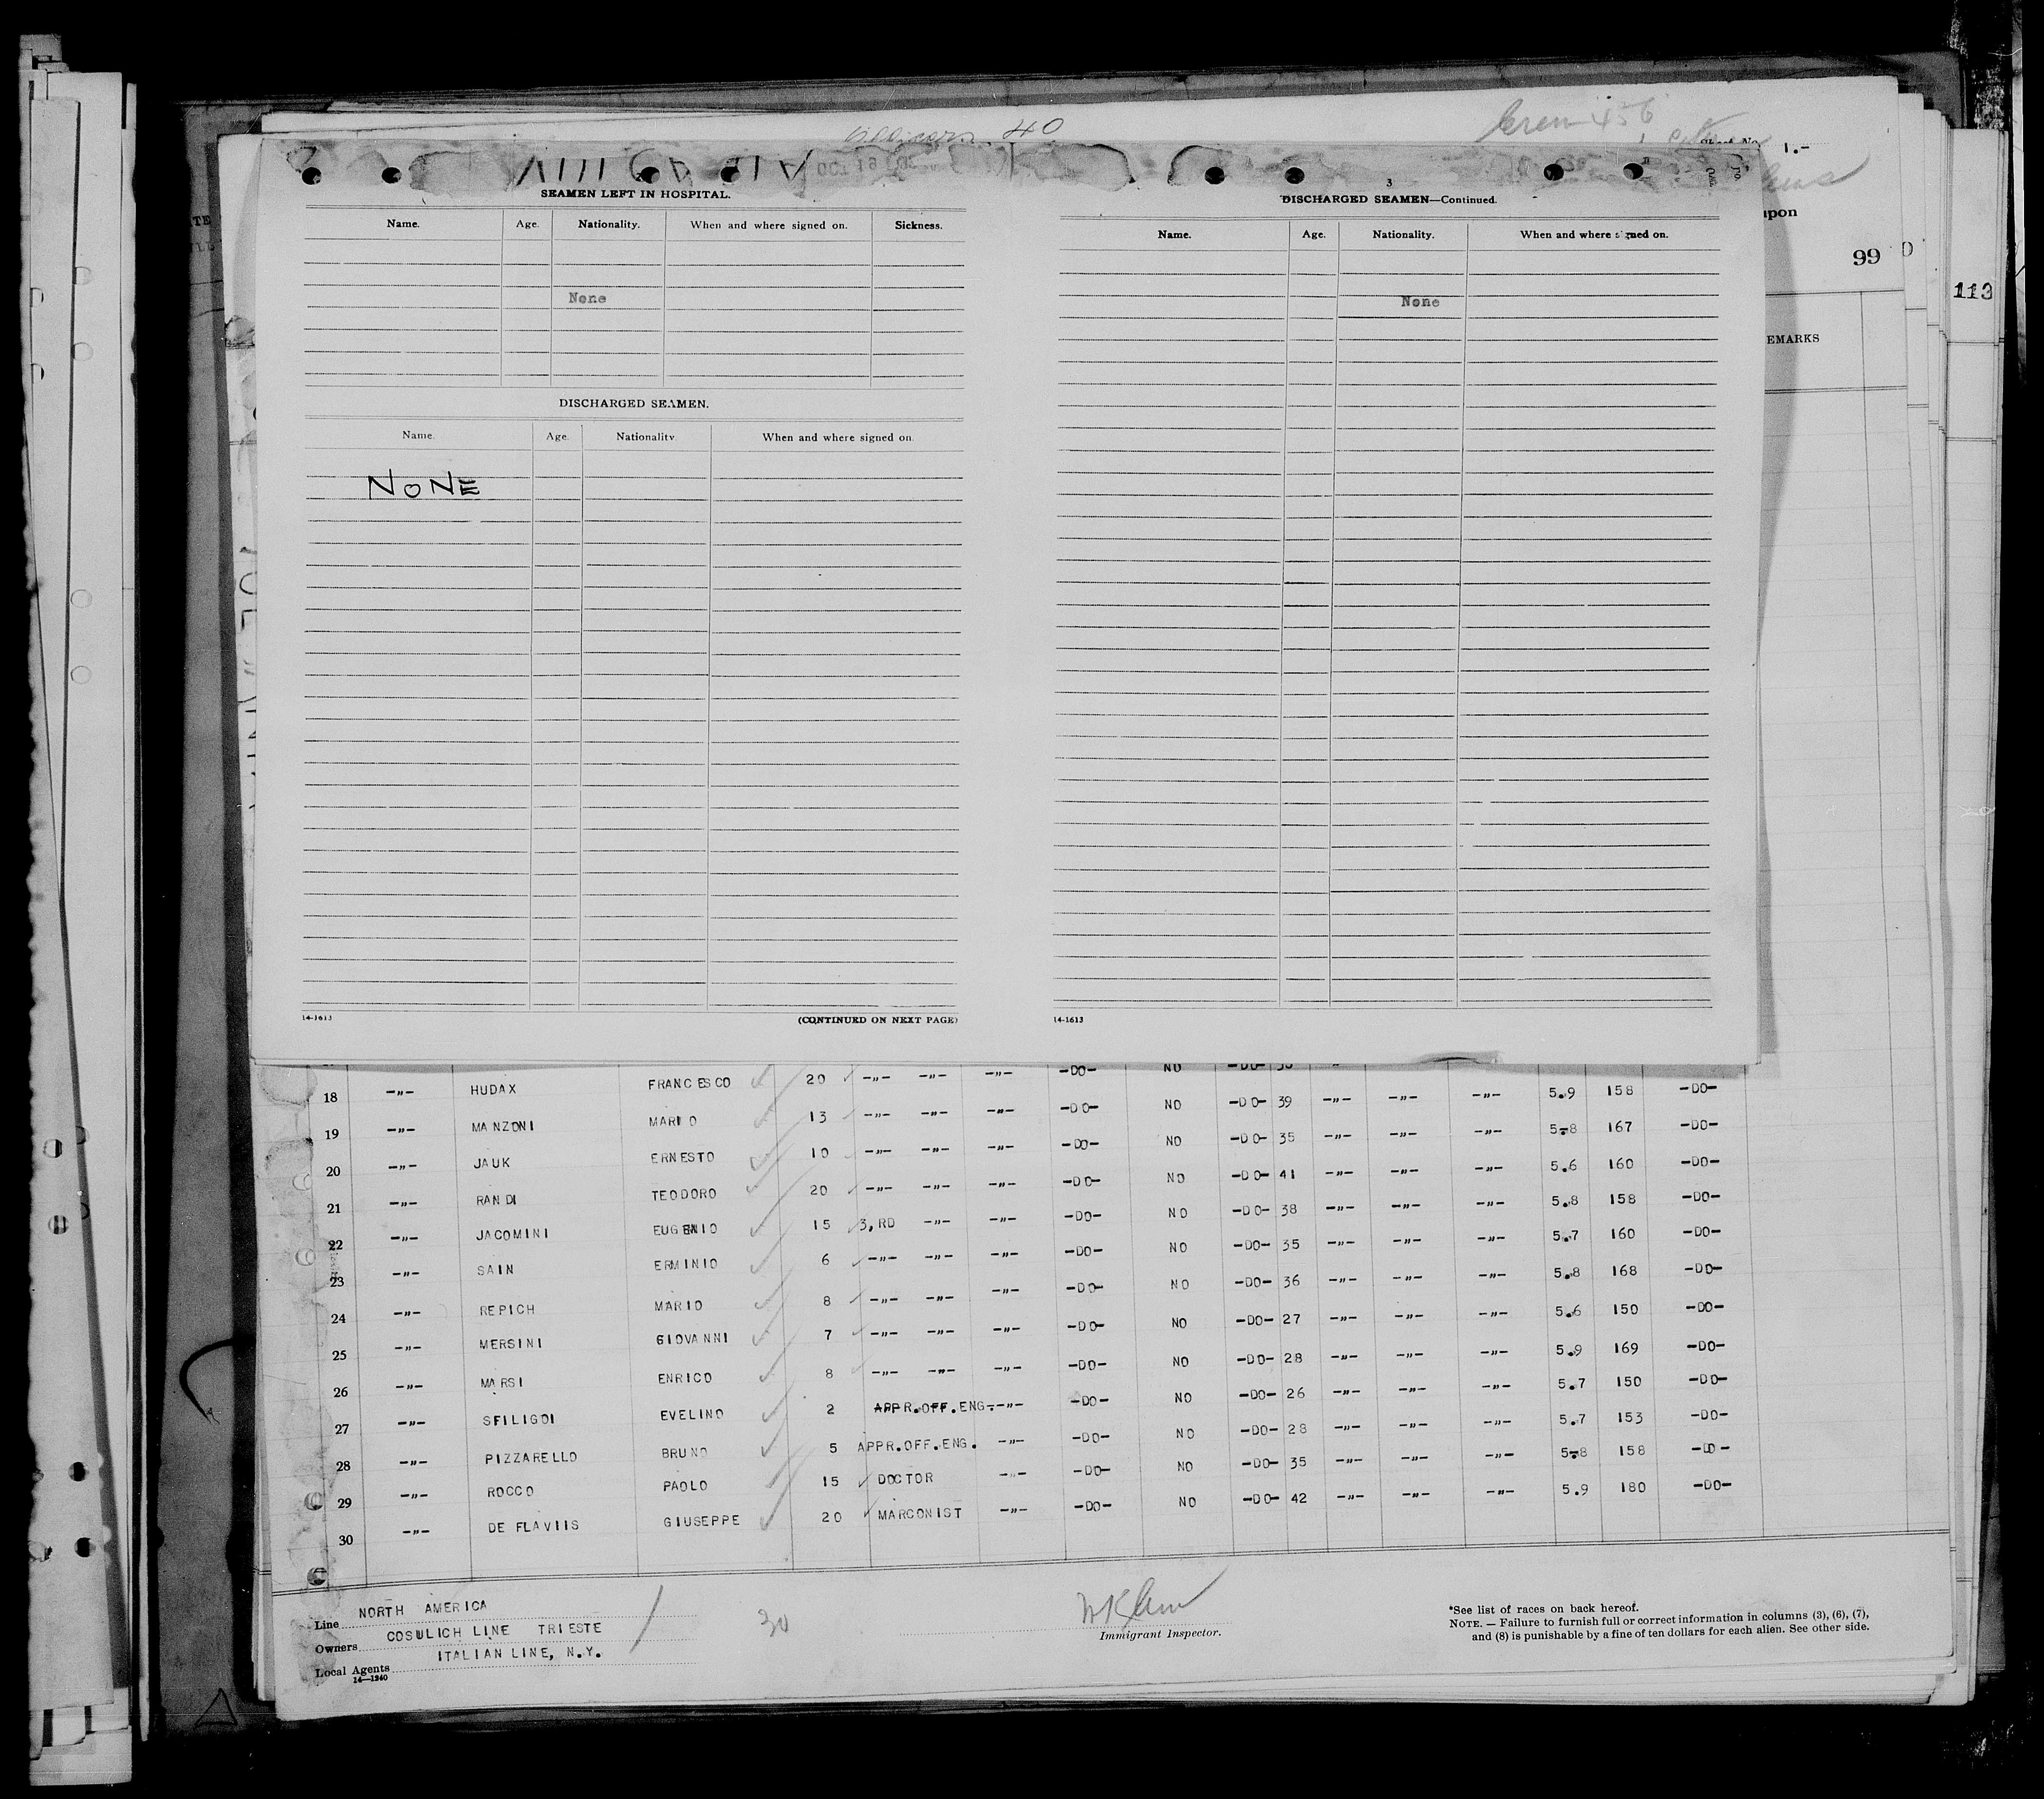 Crew 456
40
Sheet No. 1.-
upon
99
113
EMARKS
SEAMEN LEFT IN HOSPITAL.
Name. Age. Nationality. When and where signed on. Sickness.
None
DISCHARGED SEAMEN.
Name. Age. Nationality When and where signed on.
NONE
14-1613 (CONTINUED ON NEXT PAGE)
3
DISCHARGED SEAMEN—Continued.
Name. Age. Nationality. When and where signed on.
None
14-1613
18 -"- HUDAX FRANCESCO 20 -"- -"- -"- -DO- NO -DO- 39 -"- -"- -"- 5.9 158 -DO-
19 -"- MANZONI MARIO 13 -"- -"- -"- -DO- NO -DO- 35 -"- -"- -"- 5.8 167 -DO-
20 -"- JAUK ERNESTO 10 -"- -"- -"- -DO- NO -DO- 41 -"- -"- -"- 5.6 160 -DO-
21 -"- RANDI TEODORO 20 -"- -"- -"- -DO- NO -DO- 38 -"- -"- -"- 5.8 158 -DO-
22 -"- JACOMINI EUGENIO 15 3,RD -"- -"- -DO- NO -DO- 35 -"- -"- -"- 5.7 160 -DO-
23 -"- SAIN ERMINIO 6 -"- -"- -"- -DO- NO -DO- 36 -"- -"- -"- 5.8 168 -DO-
24 -"- REPICH MARIO 8 -"- -"- -"- -DO- NO -DO- 27 -"- -"- -"- 5.6 150 -DO-
25 -"- MERSINI GIOVANNI 7 -"- -"- -"- -DO- NO -DO- 28 -"- -"- -"- 5.9 169 -DO-
26 -"- MARSI ENRICO 8 -"- -"- -"- -DO- NO -DO- 26 -"- -"- -"- 5.7 150 -DO-
27 -"- SFILIGOI EVELINO 2 APPR.OFF.ENG. -"- -DO- NO -DO- 28 -"- -"- -"- 5.7 153 -DO-
28 -"- PIZZARELLO BRUNO 5 APPR.OFF.ENG. -"- -DO- NO -DO- 35 -"- -"- -"- 5.8 158 -DO-
29 -"- ROCCO PAOLO 15 DOCTOR -"- -DO- NO -DO- 42 -"- -"- -"- 5.9 180 -DO-
30 -"- DE FLAVIIS GIUSEPPE 20 MARCONIST -"- -DO-
Line NORTH AMERICA
Owners COSULICH LINE TRIESTE
Local Agents ITALIAN LINE, N.Y.
14—1240
30
Immigrant Inspector.
*See list of races on back hereof.
NOTE. — Failure to furnish full or correct information in columns (3), (6), (7),
and (8) is punishable by a fine of ten dollars for each alien. See other side.